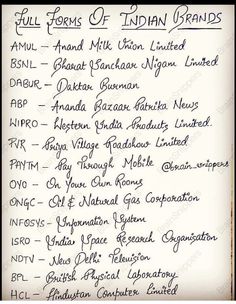 Full Forms Of Indian Brands
AMUL - Anand Milk Union Limited
BSNL - Bharat Sanchaar Nigam Limited
DABUR - Daktar Burman
ABP - Ananda Bazaar Patrika News
WIPRO - Western India Products Limited.
PVR - Priya Village Roadshow Limited
PAYTM - Pay Through Mobile @brain_snippers
OYO - On Your Own Rooms
ONGC - Oil & Natural Gas Corporation
INFOSYS - Information System
ISRO - India Space Research Organisation
NDTV - New Delhi Television
BPL - British Physical Laboratory
HCL - Hindustan Computer Limited